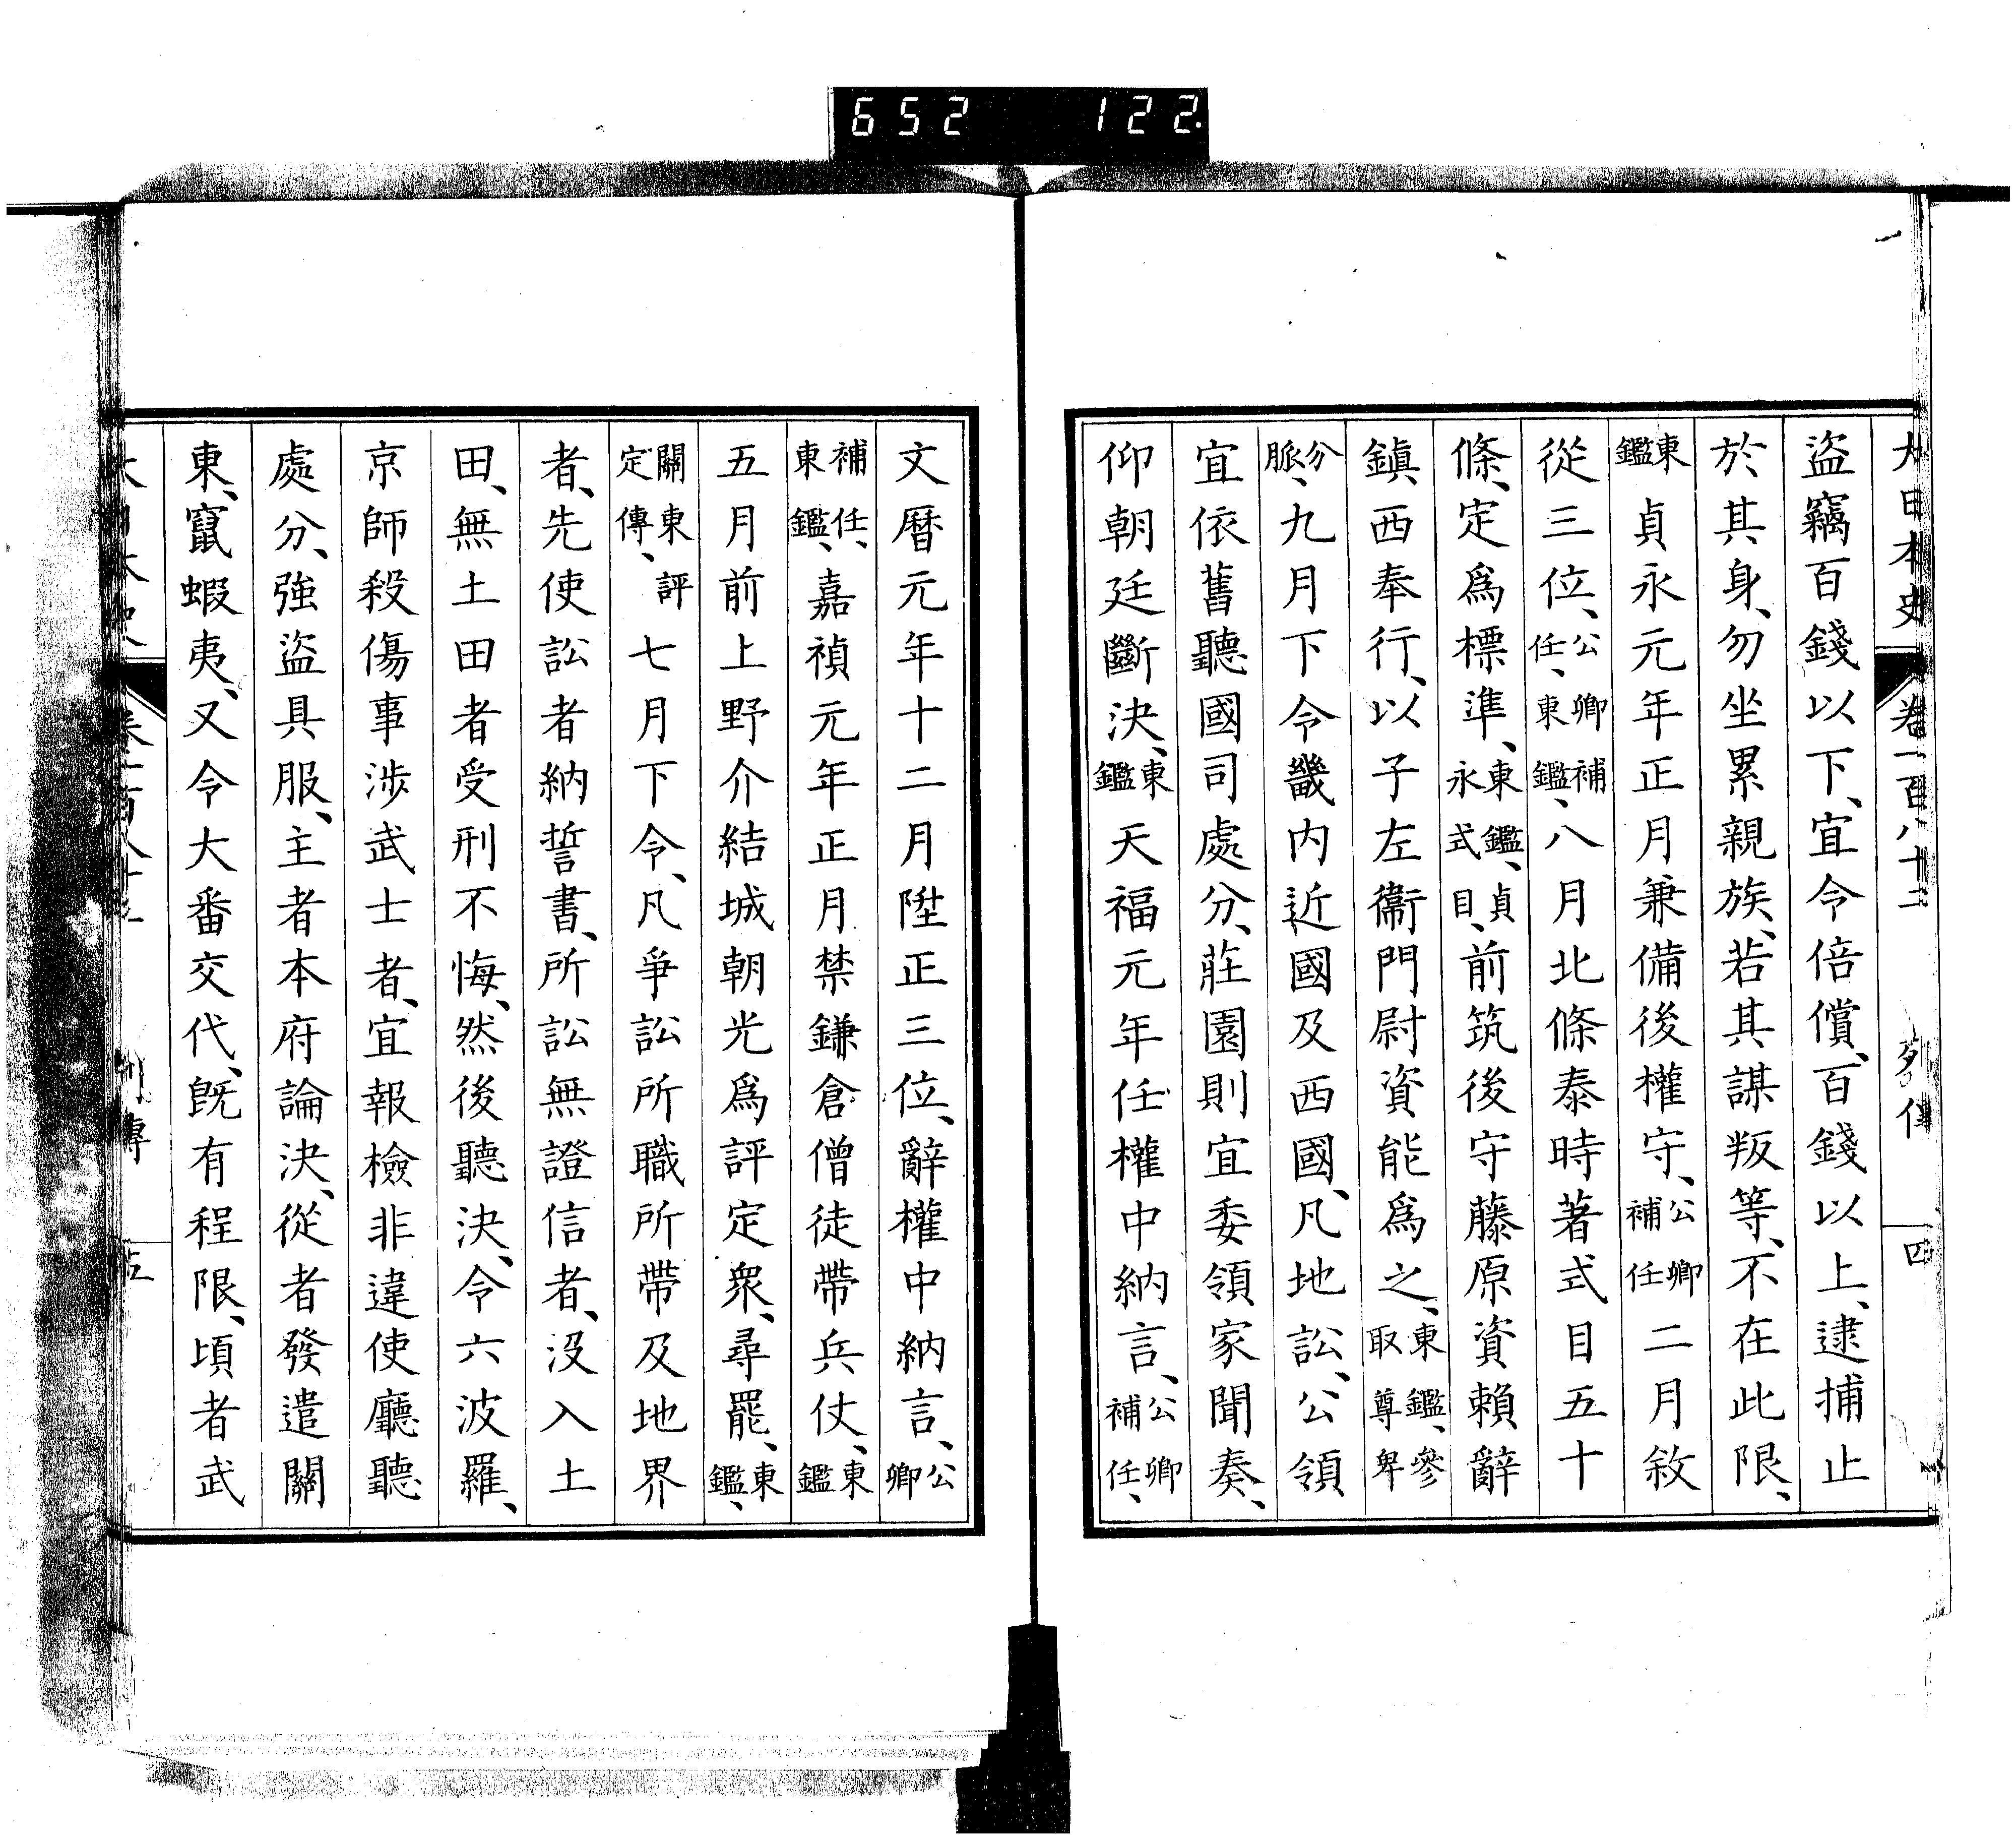 652 122
大日本史 卷一百八十二 列傳 四
盜竊百錢以下、宜令倍償、百錢以上、逮捕止
於其身、勿坐累親族、若其謀叛等、不在此限、
東鑑貞永元年正月兼備後權守、公卿補任二月敘
從三位、公卿補任、東鑑、八月北條泰時著式目五十
條、定爲標準、東鑑、貞永式目、前筑後守藤原資賴辭
鎮西奉行、以子左衞門尉資能爲之、東鑑、參取尊卑
分脈、九月下令畿內近國及西國、凡地訟、公領
宜依舊聽國司處分、莊園則宜委領家聞奏、
仰朝廷斷決、東鑑天福元年任權中納言、公卿補任、
文曆元年十二月陞正三位、辭權中納言、公卿
補任、東鑑、嘉禎元年正月禁鎌倉僧徒帶兵仗、東鑑
五月前上野介結城朝光爲評定衆、尋罷、東鑑、
關東評定傳、七月下令、凡爭訟所職所帶及地界
者、先使訟者納誓書、所訟無證信者、沒入土
田、無土田者受刑不悔、然後聽決、令六波羅、
京師殺傷事涉武士者、宜報檢非違使廳聽
處分、強盜具服、主者本府論決、從者發遣關
東、竄蝦夷、又令大番交代、旣有程限、頃者武
列傳 五